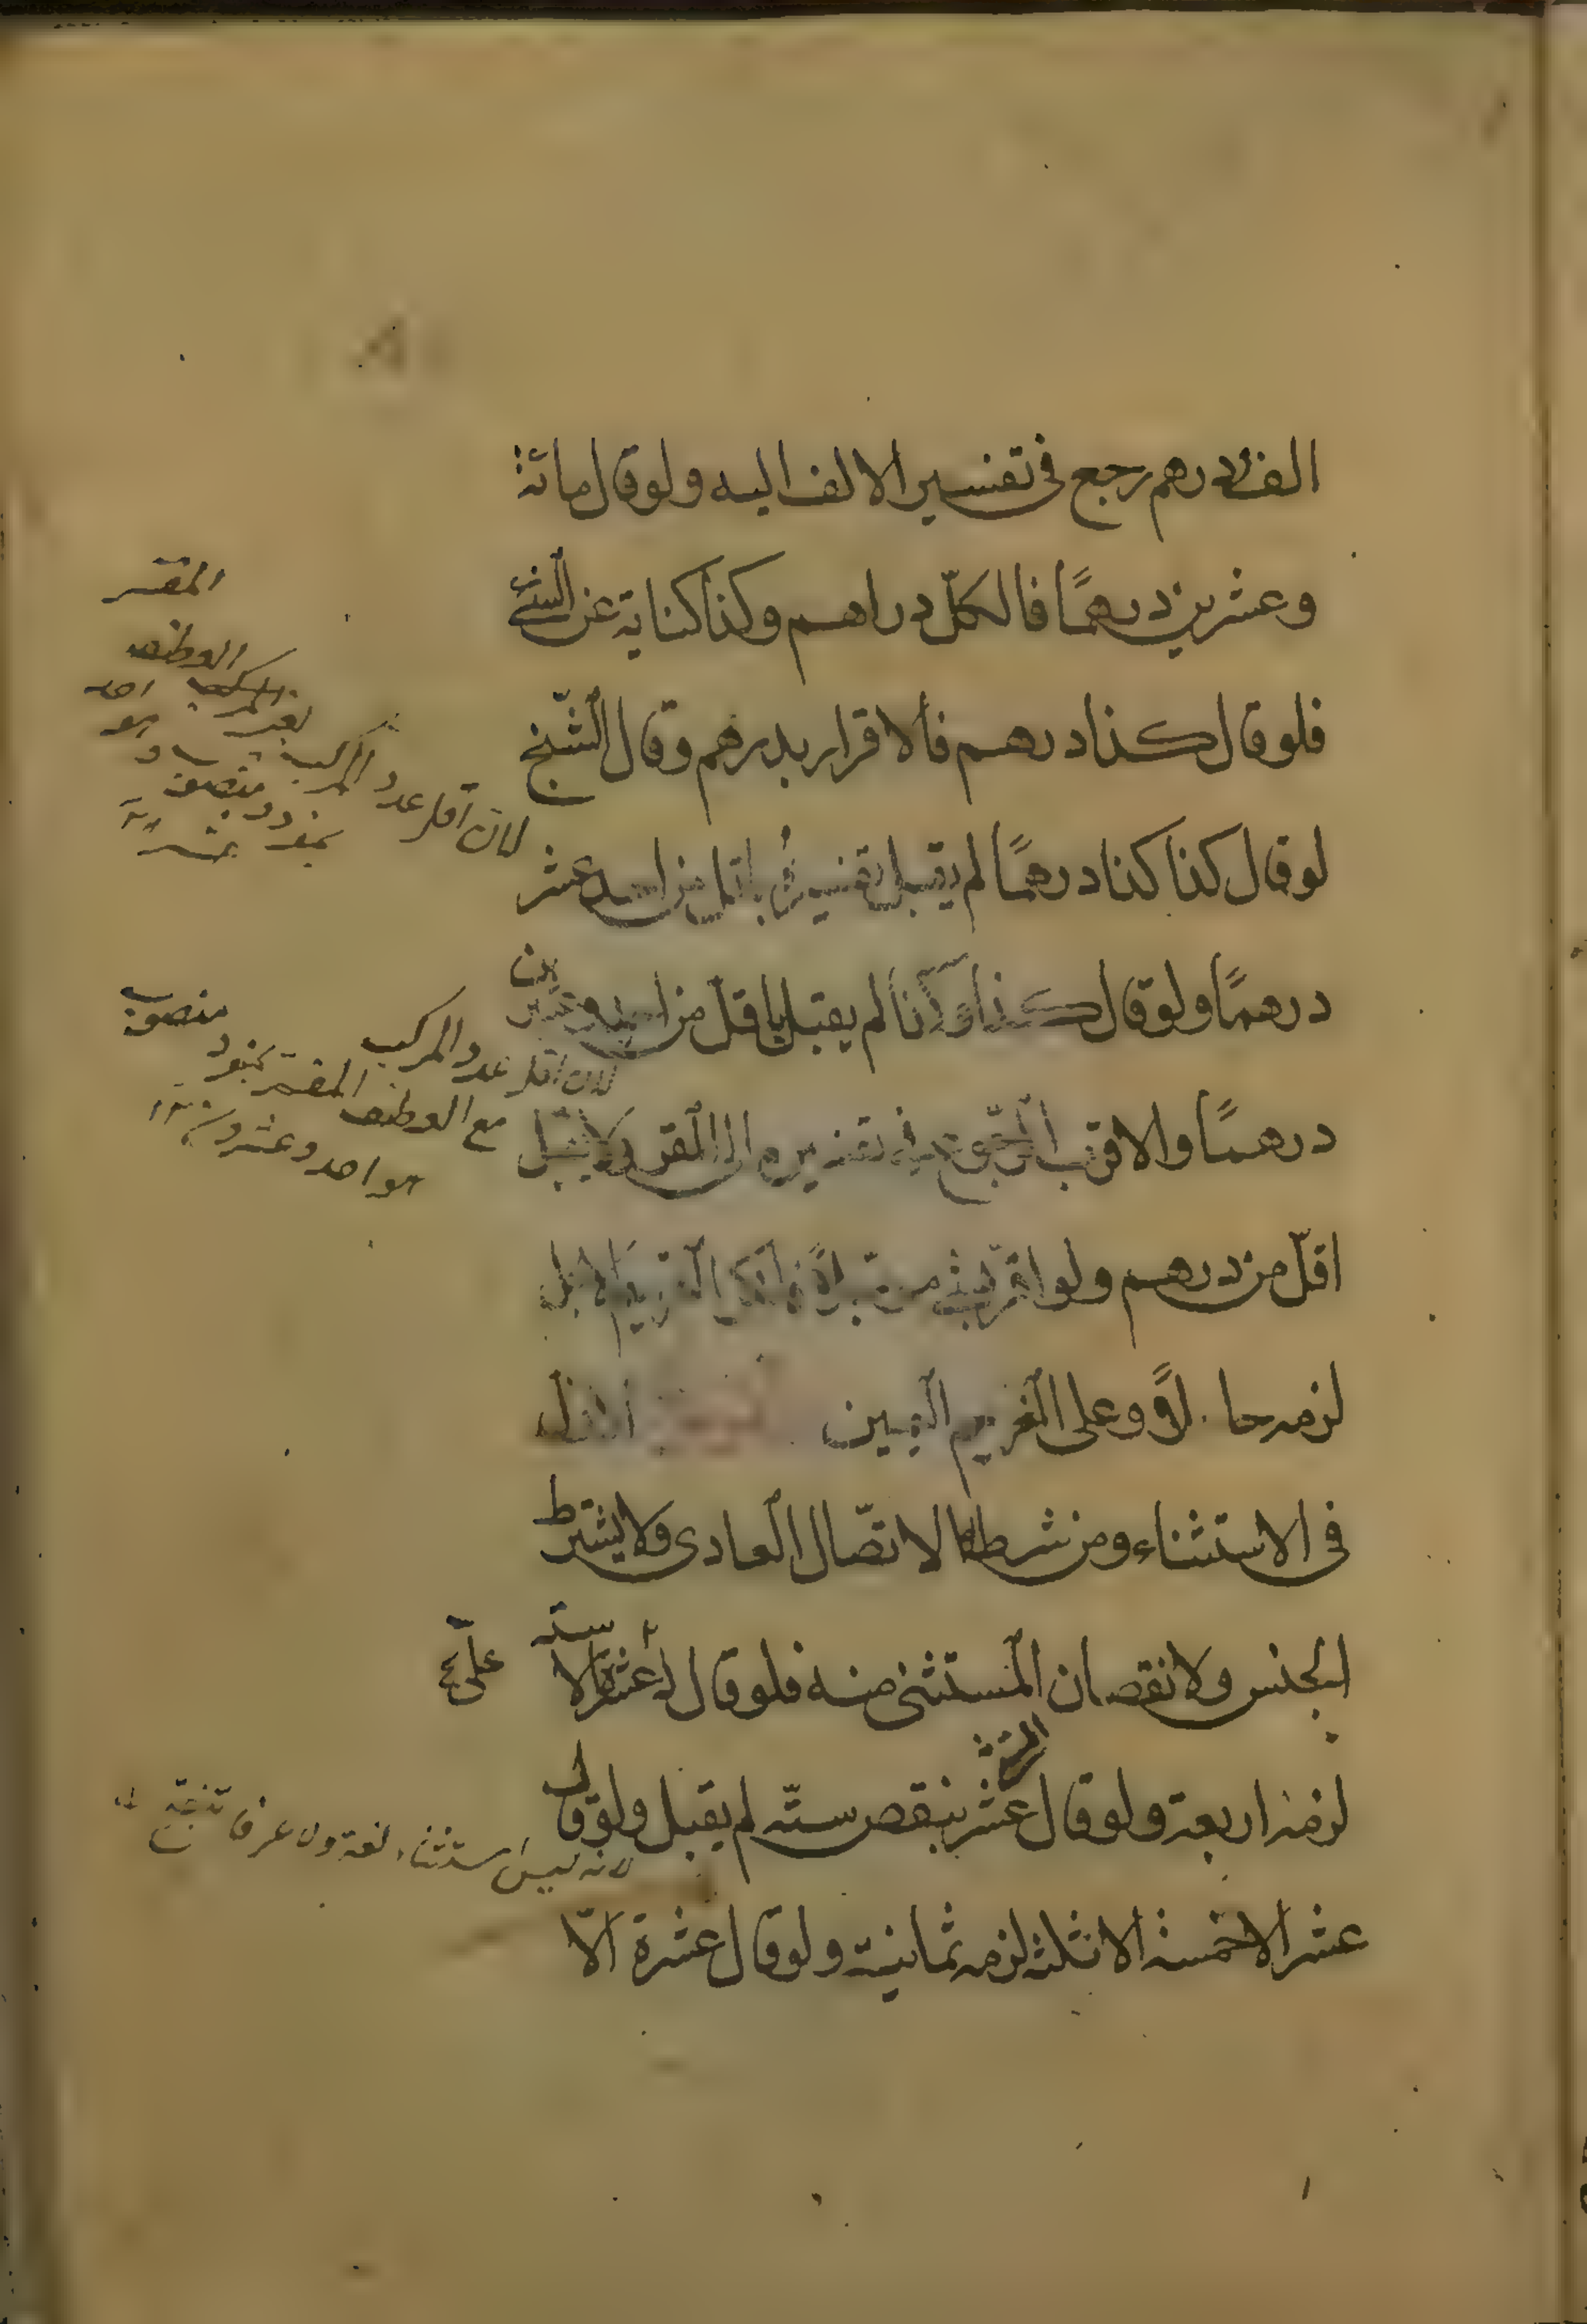 الف ودرهم رجع فى تفسير الالف اليه ولو قال مائة
وعشرين درهمًا فالكلّ دراهم وكذا كناية عن الشئ
فلو قال كذا درهم فالاقرار بدرهم وقال الشّيخ
لو قال كذا كذا درهمًا لم يقبل تفسيره باقل من احد عشر
درهمًا ولو قال كذا وكذا لم يقبل باقل من احد وعشرين
درهمًا والاقرب الرّجوع فى تفسيره الى المقر ولا يقبل
اقلّ من درهم ولو اقر بشئ مؤجلاً فانكر الغريم الاجل
لزمه حالاً وعلى الغريم اليمين
فى الاستثناء ومن شرطه الاتّصال العادى ولا يشترط
الجنس ولا نقصان المستثنى منه فلو قال له عشرة الا ستة
علىّ
لزمه اربعة ولو قال عشرة ينقص ستّة لم يقبل ولو قال
عشر الا خمسة الا ثلثة لزمه ثمانية ولو قال عشرة الّا
المفسر
لان اقل عدد المركب
بمفرد منصوب
لان اقل عدد المركب
مع العطف المفسر بمفرد منصوب
هو احد وعشرون
لانه ليس استثناء لغة ولا عرفا